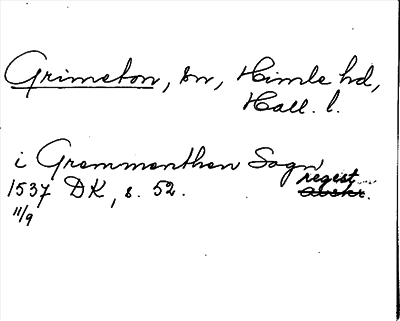 Grimeton, sn, Himle hd,
Hall. l.
i Gremmenthon Sogn
regest.
1537 DK, s. 52. Abskr.
11/9